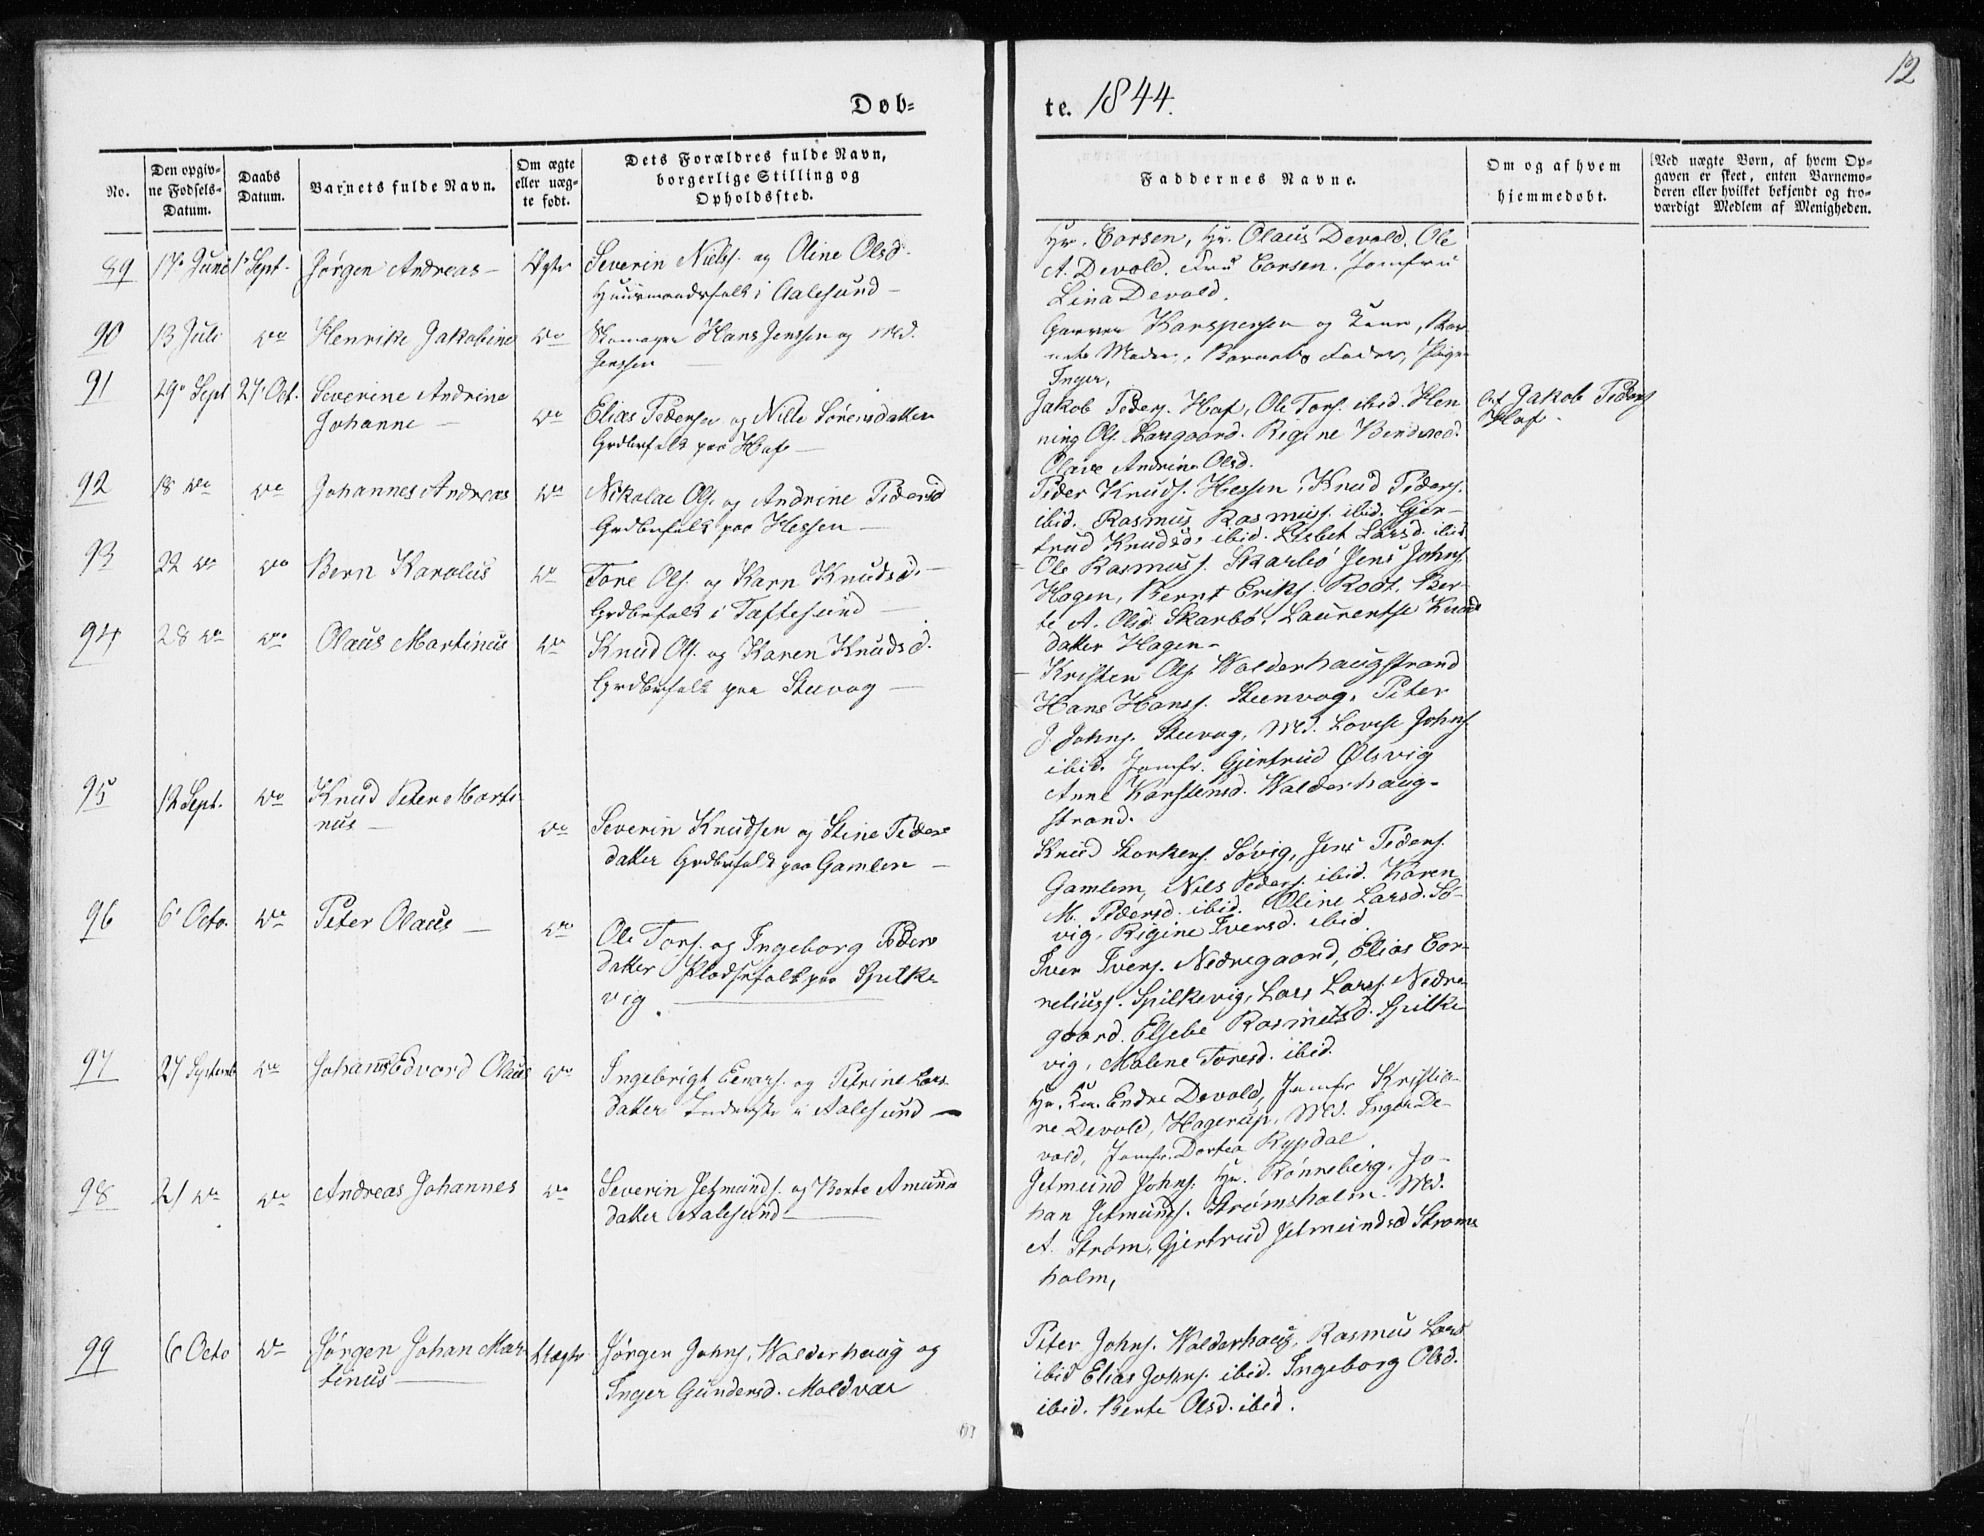 12
Døb-
te. 1844.
No.
Den opgiv-
ne Fødsels-
Datum.
Daabs
Datum.
Barnets fulde Navn.
Om ægte
eller uæg-
te født.
Dets Forældres fulde Navn,
borgerlige Stilling og
Opholdssted.
Faddernes Navne.
Om og af hvem
hjemmedøbt.
Ved uægte Børn, af hvem Op-
gaven er skeet, enten Barnemo-
deren eller hvilket bekjendt og tro-
værdigt Medlem af Menigheden.
89 17 Juni 1 Sept. Jørgen Andreas Ægte Severin Niels. og Oline Olsd.
Huusmandsfolk i Aalesund
Hr. Corsen, Hr. Olaus Devold, Ole
A. Devold. Fru Corsen. Jomfru
Lina Devold.
90 13 Juli do Henrike Jakobine do Skomager Hans Jenssen og Md.
Jenssen
Garver Karspersen og Kone, Bar-
nets Moder, Barnets Fader, Pige
Inger,
91 29 Sept 27 Oct. Severine Andrine
Johanne do Elias Pedersen og Nille Sørensdatter
Grdbrfolk paa Hof
Jakob Peders. Hof, Ole Tors. ibid. Hen
ning Ols. Larsgaard. Regine Bendsd.
Olave Andrine Olsd.
af Jakob Peders
Hof
92 18 do do Johannes Andreas do Nikolai Ols. og Andrine Pedersd
Grdbrfolk paa Hessen
Peder Knuds. Hessen, Knud Peders.
ibid. Rasmus Rasmuss. ibid. Gjer-
trud Knudsd. ibid. Lisbet Larsd. ibid
93 22 do do Bern Karolus do Tore Ols. og Karn Knudsd.
Grdbrfolk i Tæftesund
Ole Rasmuss. Skarbø Jens Johns.
Hagen, Bernt Eriks. Rødt, Ber-
te A. Olsd. Skarbø, Laurentse Knuds
datter Hagen
94 28 do do Olaus Martinus do Knud Ols. og Karen Knudsd.
Grdbrfolk paa Steevog
Kristen Ols. Walderhaugstrand
Hans Hanss. Steenvog, Peter
J. Johns. Steevog, Md. Lovise Johns.
ibid. Jomfr. Gjertrud Ølsvig
Anne Karstensd. Walderhaug-
strand.
95 12 Sept. do Knud Peter Marti
nus do Severin Knudsen og Stine Peders
datter Grdbrfolk paa Gamlem
Knud Storkers. Søvig, Jens Peders.
Gamlem, Nils Peders. ibid. Karen
M. Pedersd. ibid. Oline Larsd. Sø-
vig, Regine Iversd. ibid.
96 6 Octo. do Peter Olaus do Ole Tors. og Ingeborg Peders
datter Pladsefolk paa Spilke-
vig
Iver Ivers. Nedregaard, Elias Cor-
neliuss. Spilkevig, Lars Larss. Nedre-
gaard. Elsebe Rasmusd. Spilke
vig, Malene Toresd. ibid.
97 27 Septemb do Johannes Edvard Olaus do Ingebrigt Einars. og Petrine Lars
datter Inderste i Aalesund
Hr. Endre Devold, Jomfr. Kristia-
ne Devold, Hagerup, Md. Inger De-
vold, Jomfr. Dortea Rypdal
98 21 do do Andreas Johannes do Severin Jetmunds. og Berte Amund
datter Aalesund
Jetmund Johns. Hr. Rønneberg, Jo-
han Jetmunds. Strømsholm. Md.
A. Strøm, Gjertrud Jetmundsd Strøms
holm,
99 6 Octo do Jørgen Johan Mar-
tinus Uægte Jørgen Johns. Walderhaug og
Inger Gundersd. Moldvær
Peter Johns. Walderhaug, Rasmus Lars
ibid Elias Johns. ibid. Ingeborg Olsd.
ibid. Berte Olsd. ibid.